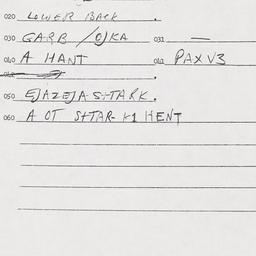 020 LOWER BACK .
030 GARB /OJKA 031 —
040 A HANT 041 PAXV3
050 EJAZEJA-S+TARK.
060 A OT S+TAR- +1 HENT